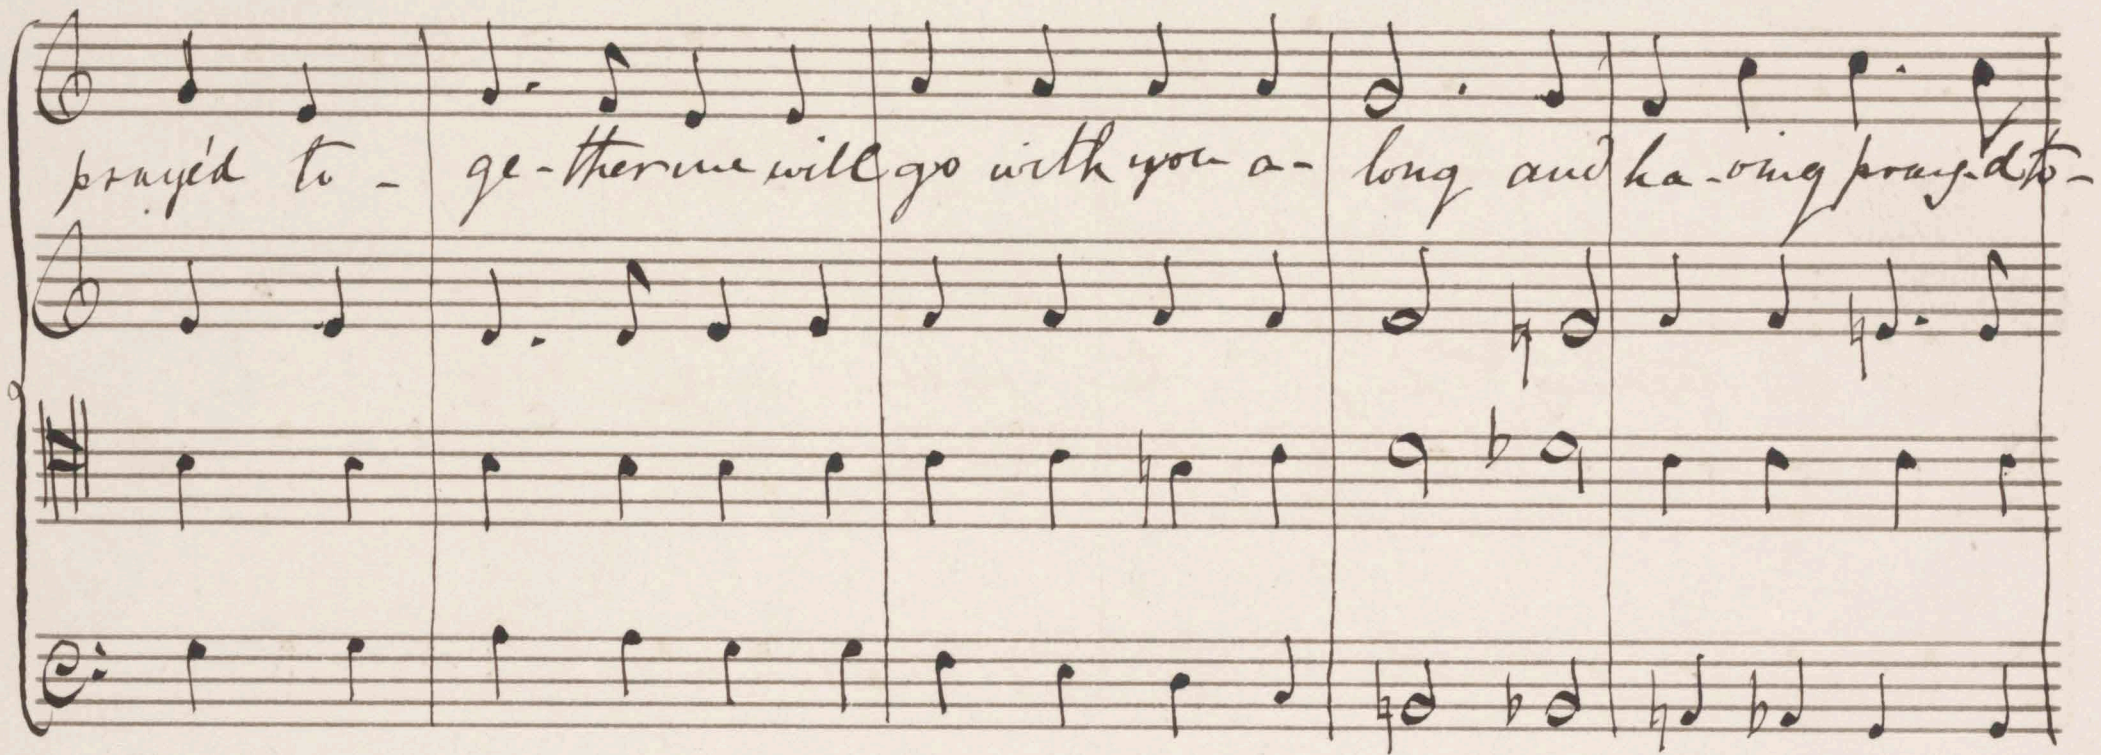 pray'd to - ge - ther we will go with you a - long and ha - ving pray'd to -